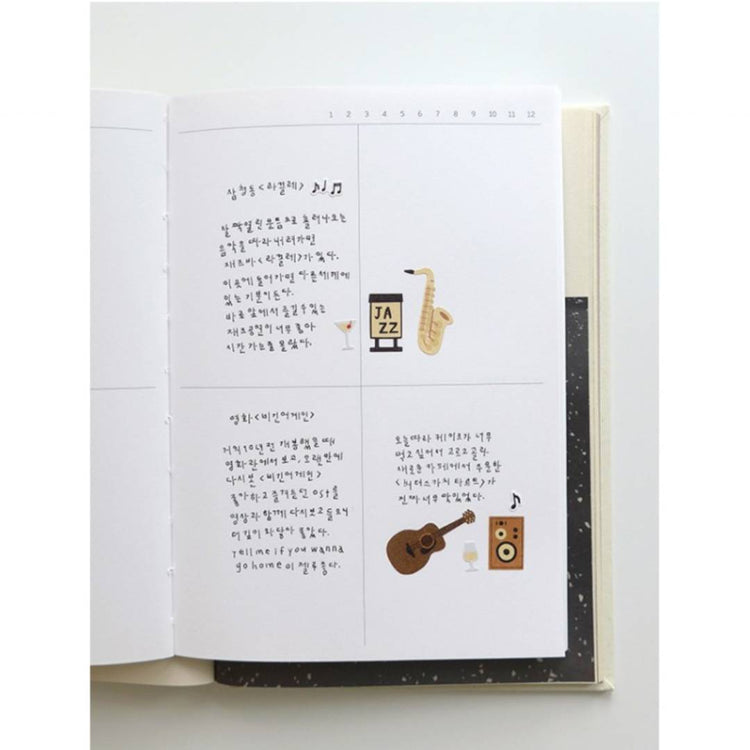 1 2 3 4 5 6 7 8 9 10 11 12
삼청동 <라끌레>
살짝 열린 문틈으로 흘러나오는
음악을 따라 내려가면
재즈바 <라끌레>가 있다.
이곳에 들어가면 다른세계에
있는 기분이든다.
바로 앞에서 즐길수있는
재즈공연이 너무 좋아
시간 가는줄 몰랐다.
JA
ZZ
영화 <비긴어게인>
거의 10년전 개봉했을 때
영화관에서 보고, 오랜만에
다시본 <비긴어게인>
좋아하고 즐겨듣던 ost를
영상과 함께 다시보고 들으니
더 깊이 와닿아 좋았다.
tell me if you wanna
go home 이 젤루 좋다.
오늘따라 케이크가 너무
먹고싶어서 고르고 골라
새로운 카페에서 주문한
타르트>가
진짜 너무 맛있었다.